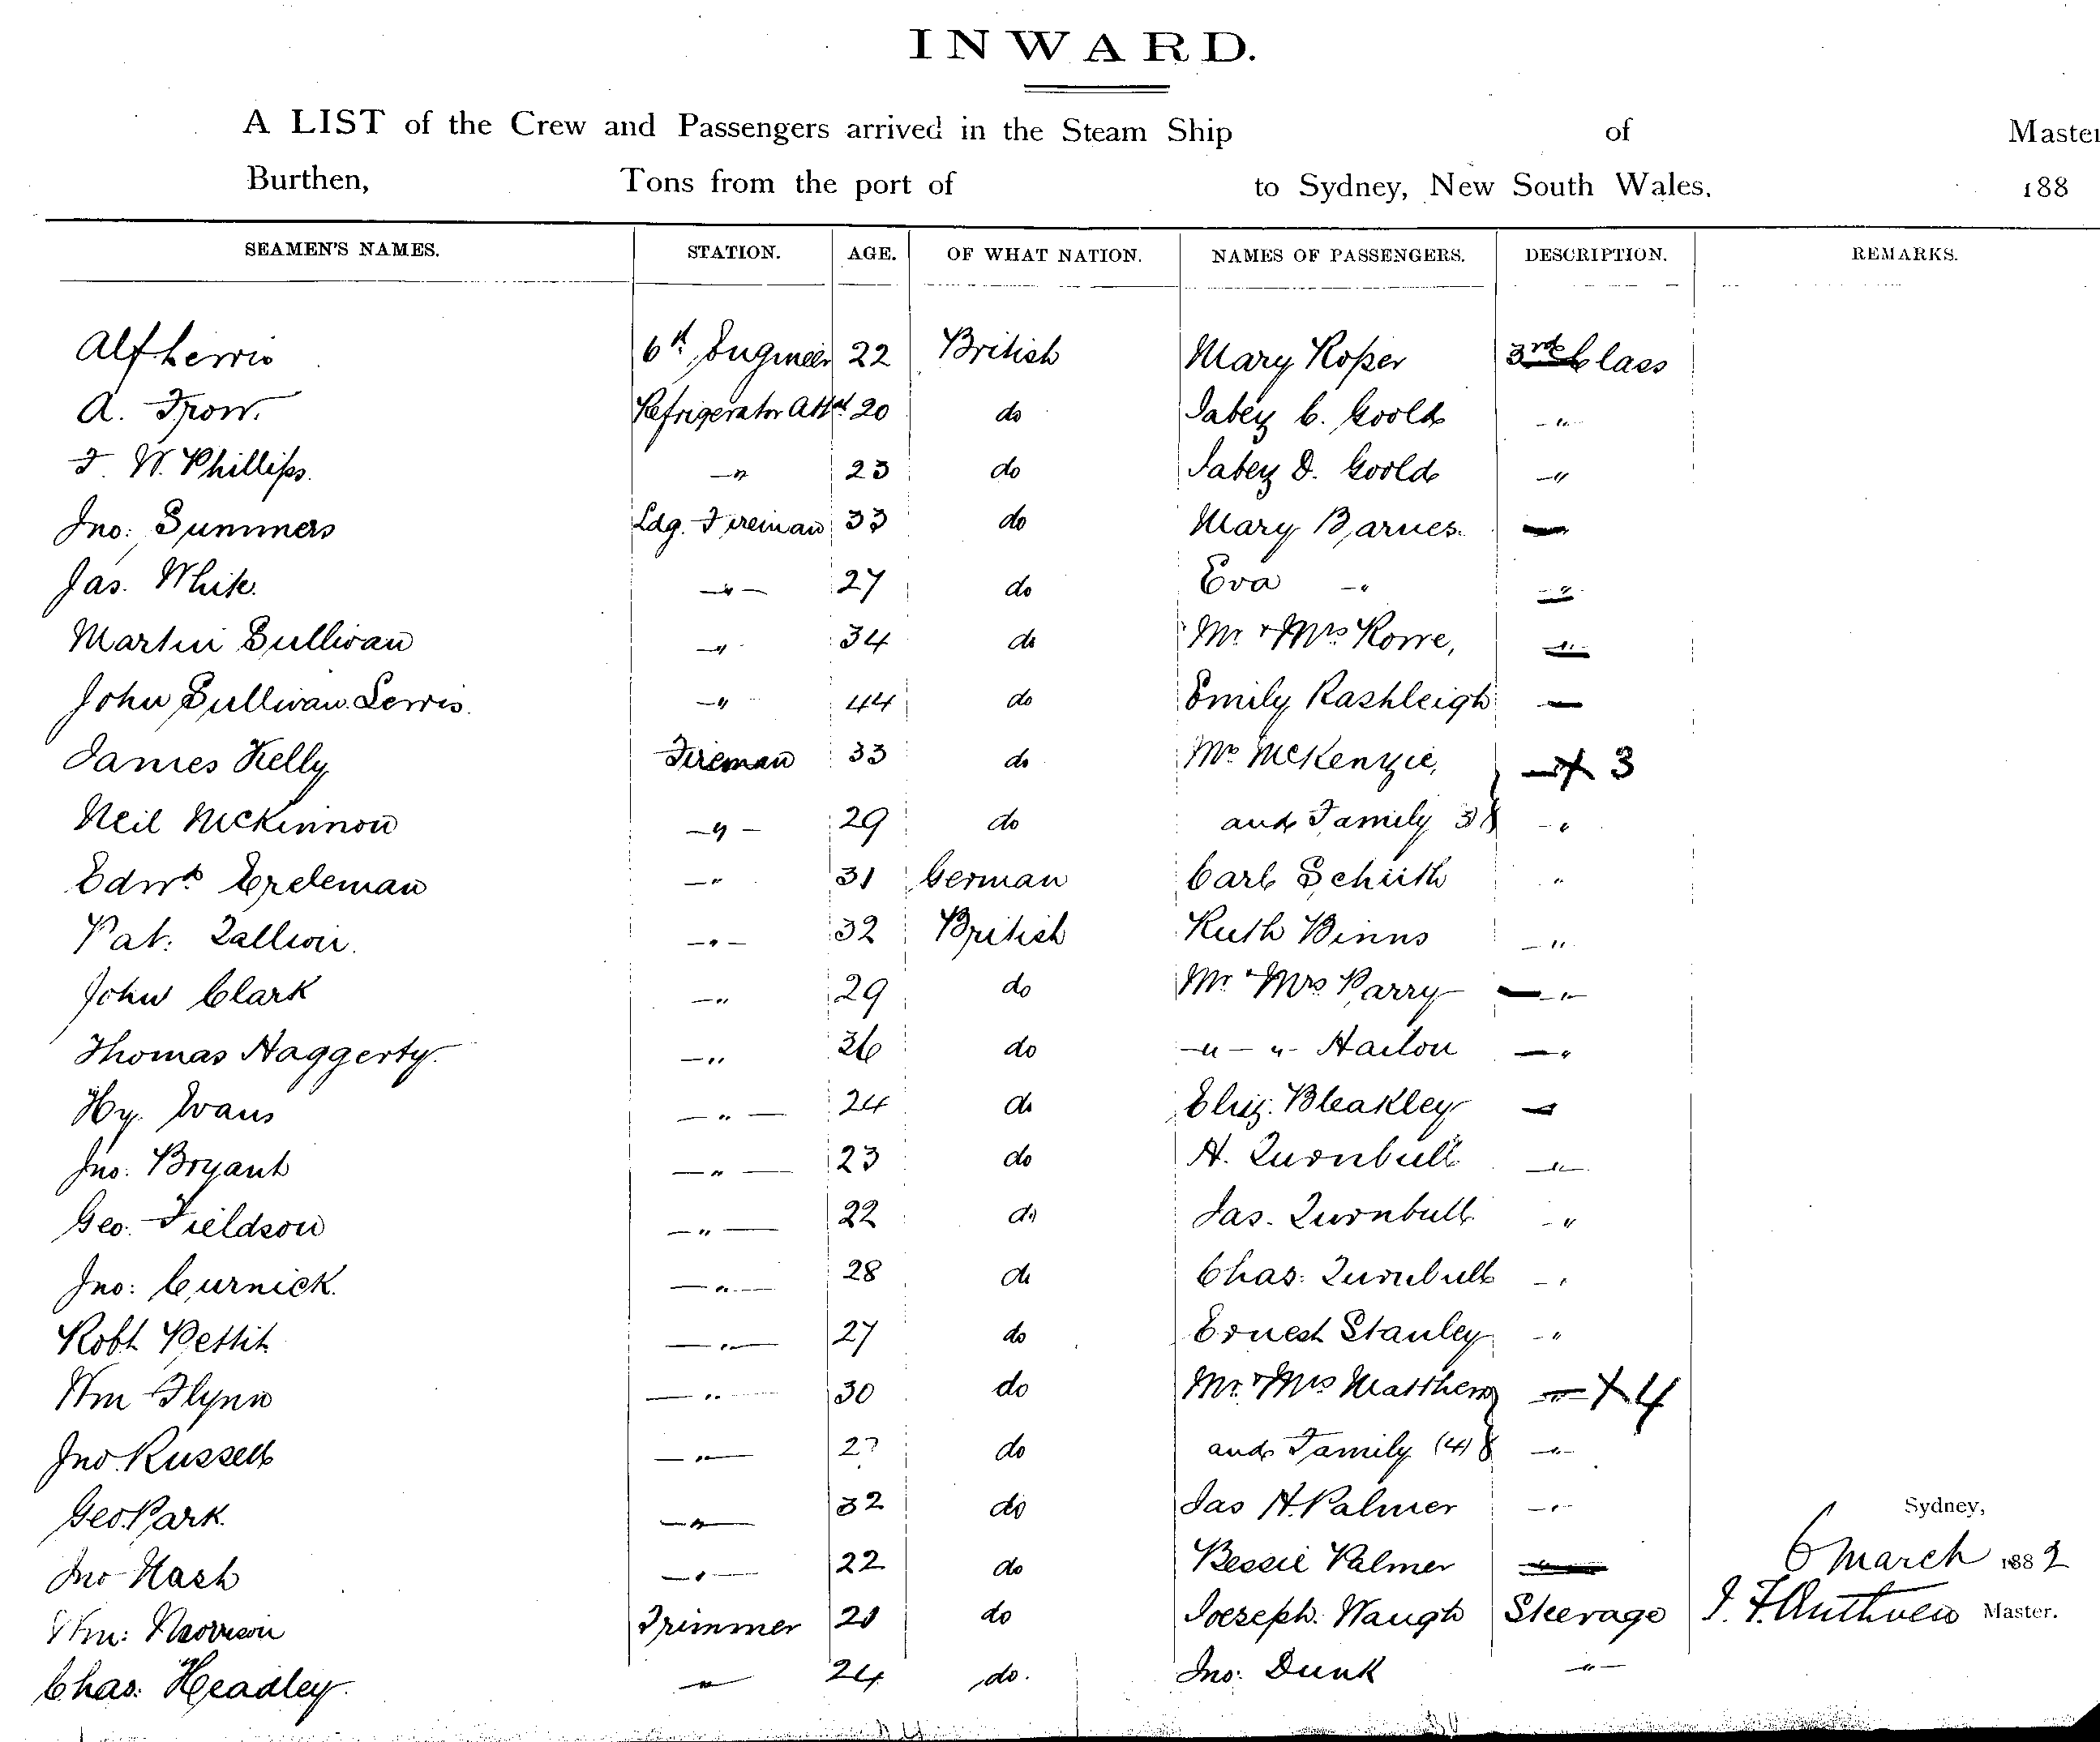 INWARD.
A LIST of the Crew and Passengers arrived in the Steam Ship of Master
Burthen, Tons from the port of to Sydney, New South Wales. 188
SEAMEN'S NAMES. STATION. AGE. OF WHAT NATION. NAMES OF PASSENGERS. DESCRIPTION. REMARKS.
Alf Lewis 6th Engineer 22 British Mary Roper 3rd Class
A. Trow. Refrigerator Attd 20 do Jabez C. Goold - " -
F. W. Phillips. - " 23 do Jabez D. Goold - "
Jno: Summers Ldg. Fireman 33 do Mary Barnes. -
Jas. White. - " - 27 do Eva - " - " -
Martin Sullivan - " 34 do Mr. & Mrs Rowe, - " -
John Sullivan Lewis. - " 44 do Emily Rashleigh -
James Kelly Fireman 33 do Mr McKenzie, - " X 3
Neil McKinnon - " - 29 do and Family 3 } - "
Edwd - " 31 German Carl Schüth "
Pat: - " - 32 British Ruth Binns - "
John Clark - " 29 do Mr & Mrs Parry - " -
Thomas Haggerty. - " 36 do - " - " - - "
Hy. Evans - " - 24 do Eliz. Bleakley -
Jno: Bryant - " - 23 do H. Turnbull - " -
Geo. Fieldson - " - 22 do Jas. Turnbull - "
Jno: Curnick. - " - 28 do Chas: Turnbull - "
Robt Pettit - " - 27 do Ernest Stanley - "
Wm Flynn - " - 30 do Mr. & Mrs Matthews } - " - X 4
Jno. Russell - " - 2 do and Family (4) } - " -
Geo. Park. - " - 32 do Jas H. Palmer - " - Sydney,
Jno Nash - " - 22 do Bessie Palmer - " - 6 March 1882
Wm: Morrison Trimmer 20 do Joeseph. Waugh Steerage J. F. Ruthven Master.
Chas: Headley. - " - 24 do. Jno: Dunk - " -